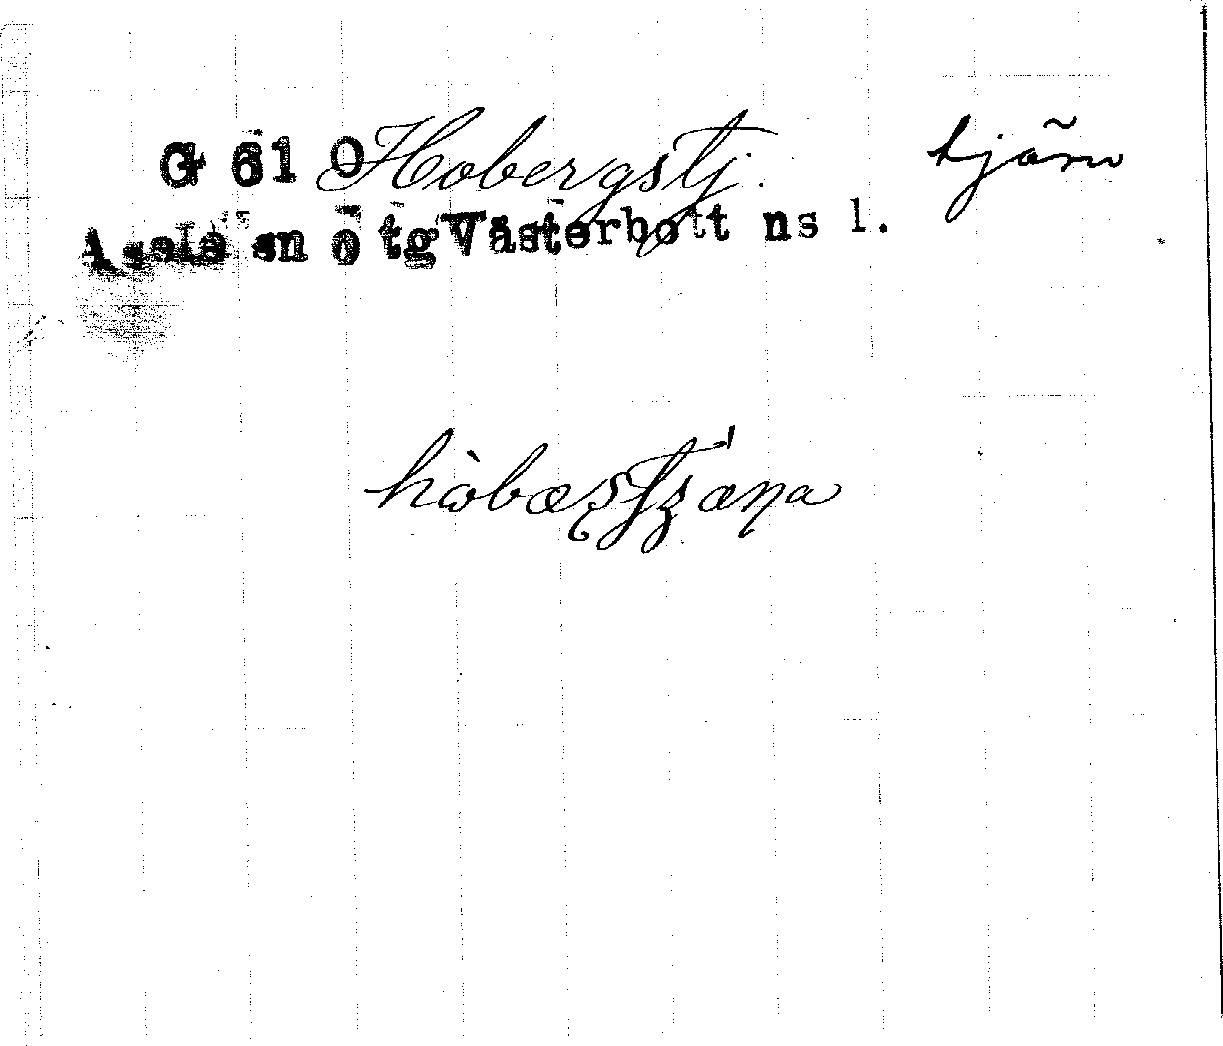 G 61 O Hobergstj. tjärn
Åsele sn ö tg Västerbott ns l.
hòbæstʒæɳa